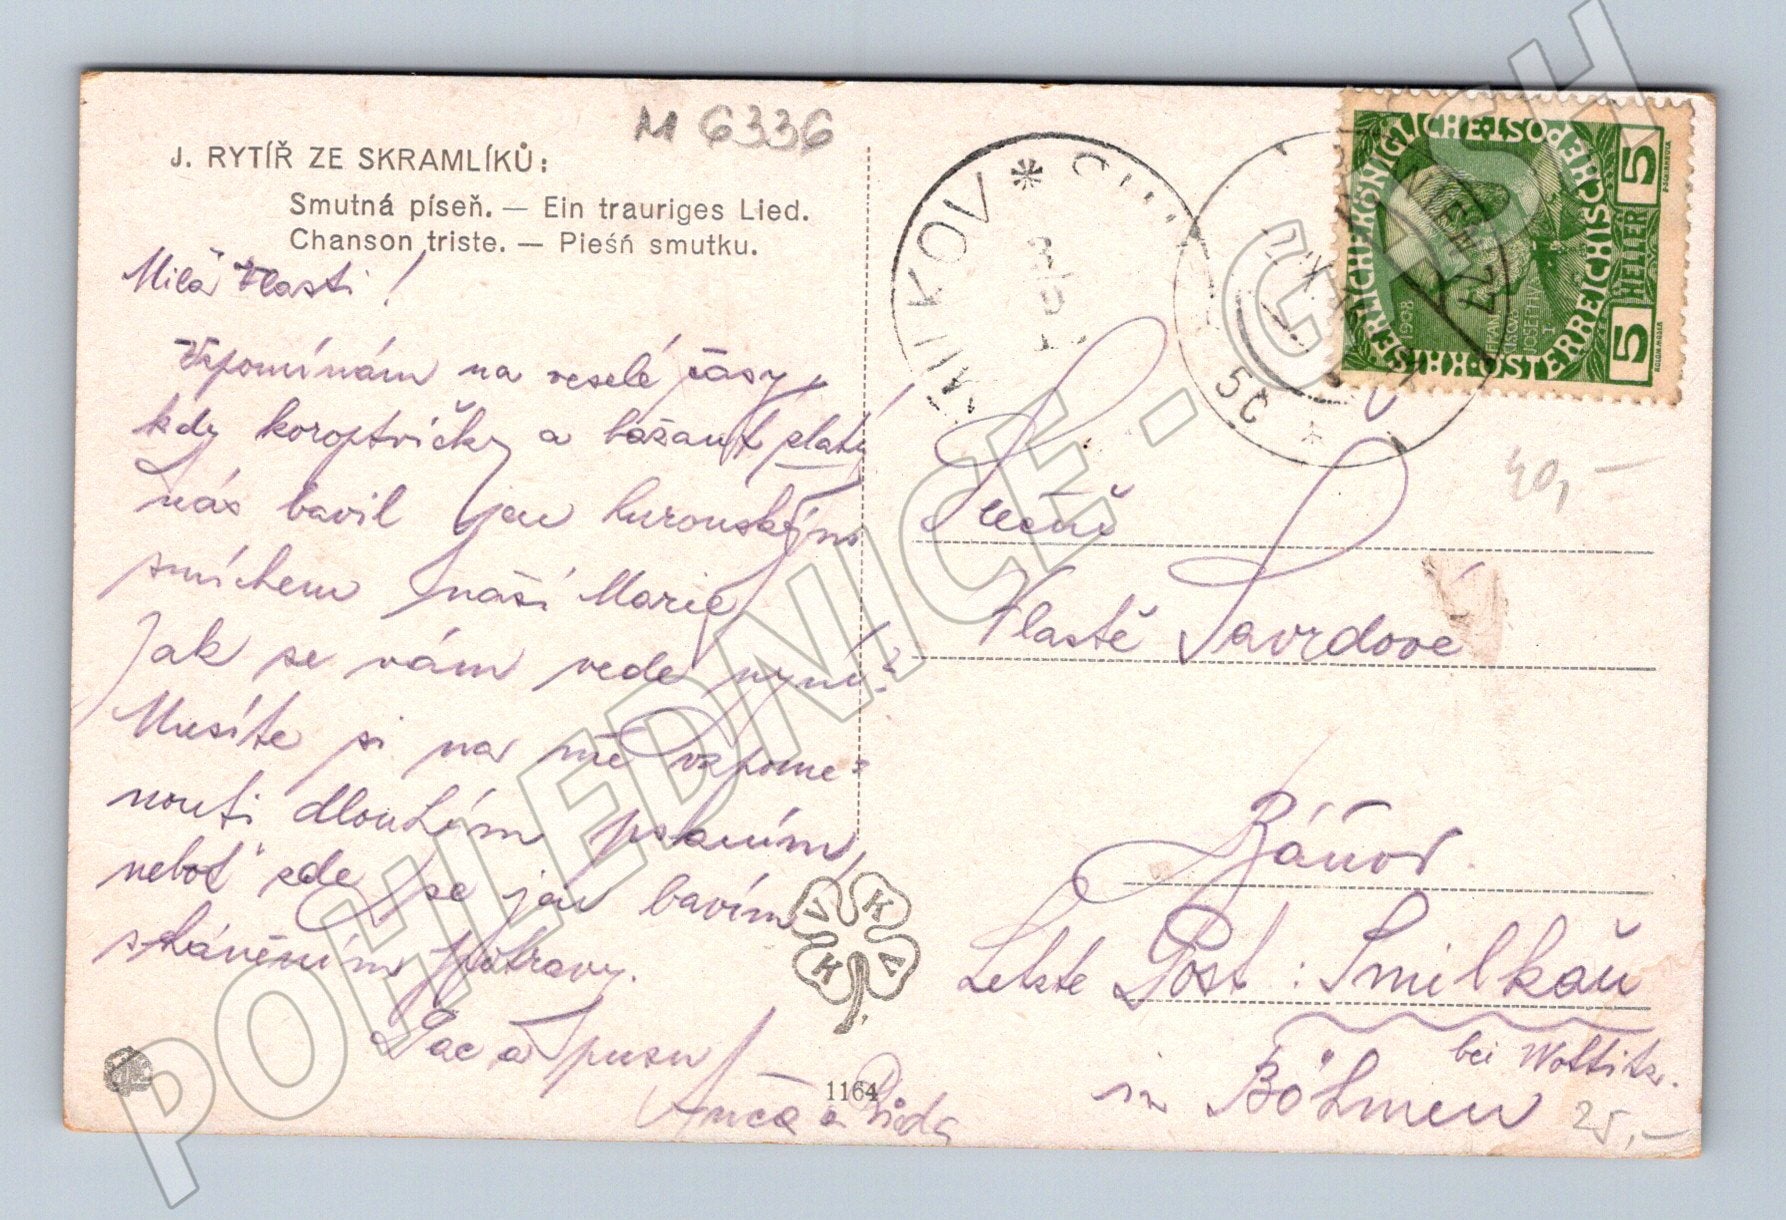 M 6336
J. RYTÍŘ ZE SKRAMLÍKŮ:
Smutná píseň. — Ein trauriges Lied.
Chanson triste. — Pieśń smutku.
Milá Vlasti!
Vzpomínám na veselé časy,
kdy koroptvičky a bažanti zlatý
nás bavil jen huronským
smíchem naší Marie
Jak se vám vede nyní?
Musíte si na mě vzpome=
nouti dlouhým psaním,
neboť zde se jen bavím
sháněním potravy.
Pac a pusu
Anča a
1164
VKVK
MILKOV *
WIEN
5c *
KAIS·KÖNIGLICHE·ÖSTERREICHISCHE·POST
5 HELLER 5
1908
40,—
Slečně
Vlastě Savrdové
Záňov.
Letzte Post: Smilkau
bei Wottitz.
in Böhmen
25,—
POHLEDNICE - CASH